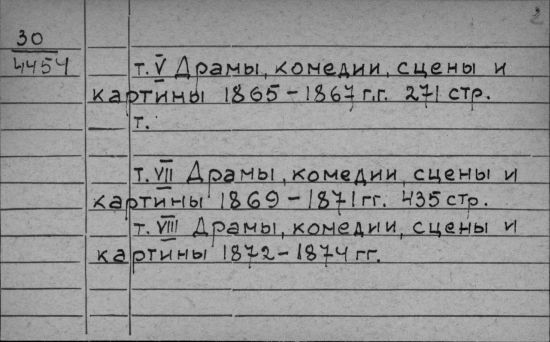 2
30
4454
т. V Драмы, комедии, сцены и
картины 1865-1867 г.г. 271 стр.
т.
т. VII Драмы, комедии, сцены и
картины 1869-1871 гг. 435 стр.
т. VIII Драмы, комедии, сцены и
картины 1872-1874 гг.